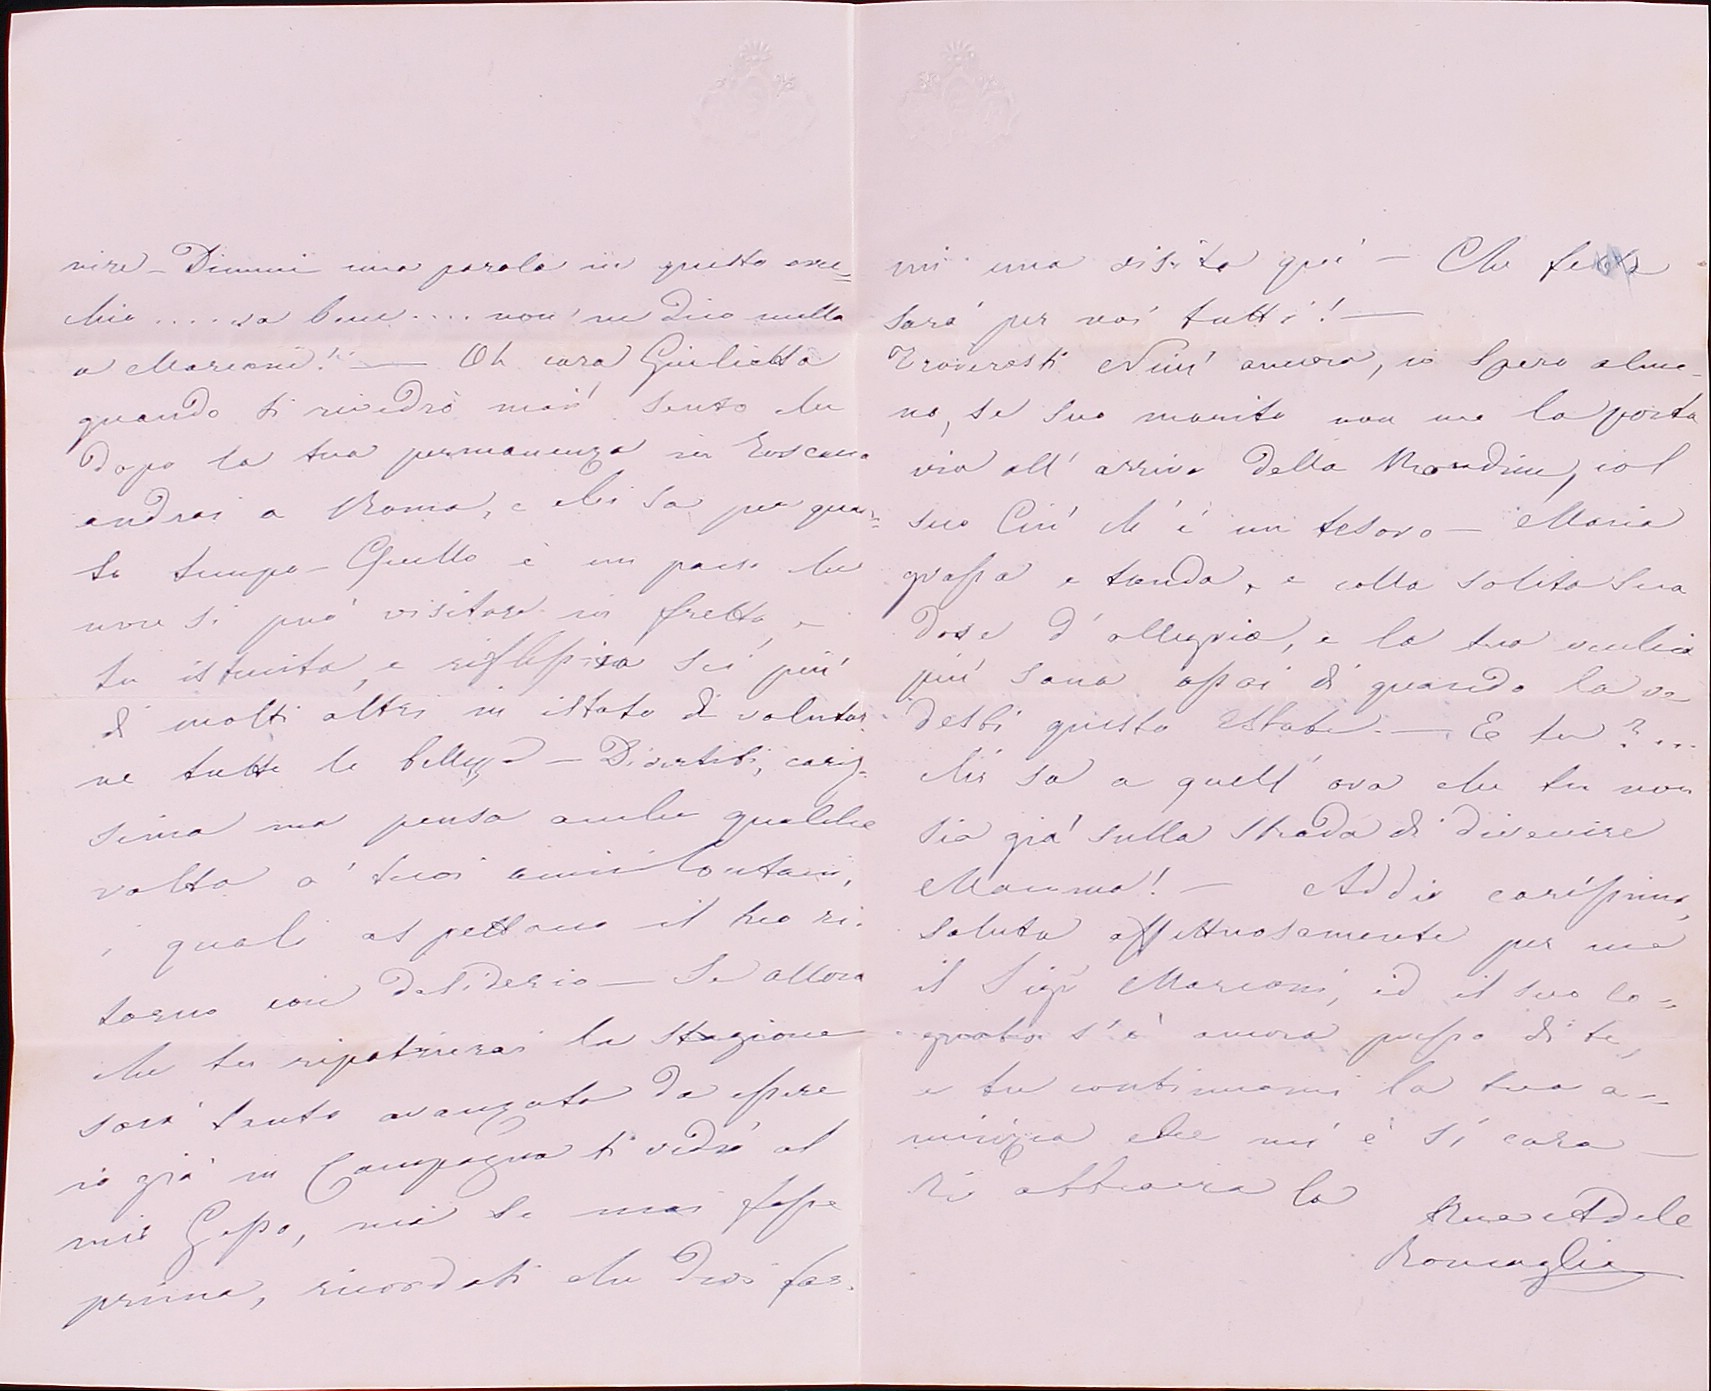 nire - Dimmi una parola in questo orec-
chio .... va bene .... non ne dico nulla
a Marconi! — Oh cara Giulietta
quando ti rivedrò mai! sento che
dopo la tua permanenza in Toscana
andrai a Roma, e chi sa per quan-
to tempo - Quello è un paese che
non si può visitare in fretta, e
tu istruita, e riflessiva sei più
di molti altri in istato di valutar-
ne tutte le bellezze - Divertiti, caris-
sima ma pensa anche qualche
volta a' tuoi amici lontani,
i quali aspettano il tuo ri-
torno con desiderio — Se allora
che tu ripatrierai la stagione
sarà tanto avanzata da essere
io già in Campagna ti vedrò al
mio Gesso, ma se mai fosse
prima, ricordati che devi far-
mi una visita quì - Che festa
sarà per noi tutti! —
Troveresti Ninì ancora, io spero alme-
no, se suo marito non me la porta
via all' arrivo delle Rondini, col
suo Cin' ch' è un tesoro - Maria
grassa e tonda, e colla solita sua
dose d' allegria, e la tua
più sana assai di quando la ve-
desti questa estate. — E tu? ...
chi sa a quell' ora che tu non
sia già sulla strada di divenire
Mamma! — Addio carissima,
saluta affettuosamente per me
il Sigr Marconi, ed il suo co-
gnato s' è ancora presso di te,
e tu continuami la tua a-
micizia che mi è sì cara —
Ti abbraccia la
Tua Adele
Roncaglia